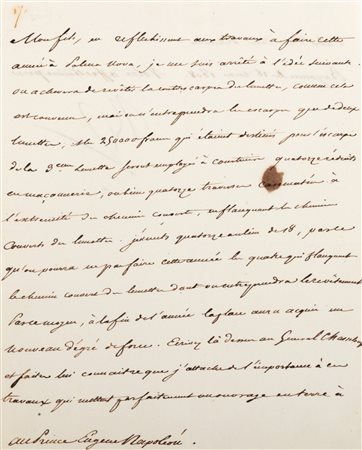 Mon fils, en réflechissant aux travaux à faire cette
année à Palma Nova, je me suis arrêté à l'idée suivante.
on achevera de revêtir la contrescarpe des lunettes, comme cela
est convenu, mais on n'entreprendra les escarpes que de deux
lunettes, et les 250000 francs qui étaient destinés pour l'escarpe
de la 3eme lunette seront employés à construire quatorze réduits
en maçonnerie, ou bien quatorze traverses casematées à
l'extremité du chemin couvert, en flanquant le chemin
couvert des lunettes. je dis quatorze au lieu de 18, parce
qu'on pourra ne pas faire cette année les quatre qui flanquent
le chemin couvert des lunettes dont on entreprendra le revêtement
Par ce moyen, à la fin de l'année la place aura acquis un
nouveau dégré de force. Ecrivez là dessus au Général Chasseloup
et faites lui connaitre que j'attache de l'importance à ces
travaux qui mettent parfaitement un ouvrage en terre à
au Prince Eugene Napoléon.